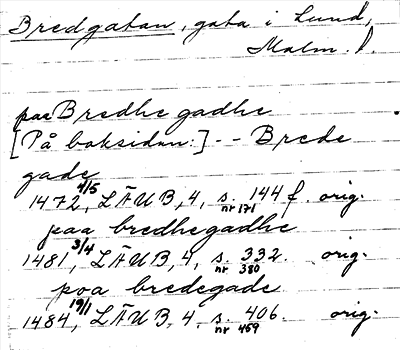 Bredgatan, gata i Lund,
Malm. l.
paa Bredhe gadhe
[På baksidan:] -- Brede
gade
1472 4/5, LÄUB, 4, s. 144 f. orig.
nr 171
paa bredhegadhe
1481 3/4, LÄUB, 4, s. 332. orig.
nr 380
poa bredegade
1484 19/1, LÄUB, 4, s. 406. orig.
nr 459